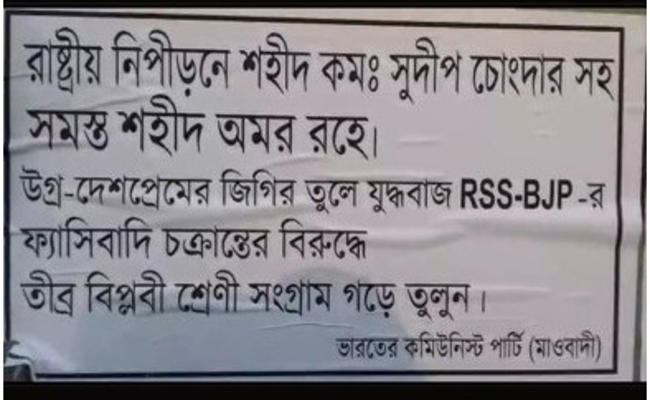 রাষ্ট্রীয় নিপীড়নে শহীদ কমঃ সুদীপ চোংদার সহ
সমস্ত শহীদ অমর রহে।
উগ্র-দেশপ্রেমের জিগির তুলে যুদ্ধবাজ RSS-BJP-র
ফ্যাসিবাদি চক্রান্তের বিরুদ্ধে
তীব্র বিপ্লবী শ্রেণী সংগ্রাম গড়ে তুলুন।
ভারতের কমিউনিস্ট পার্টি (মাওবাদী)